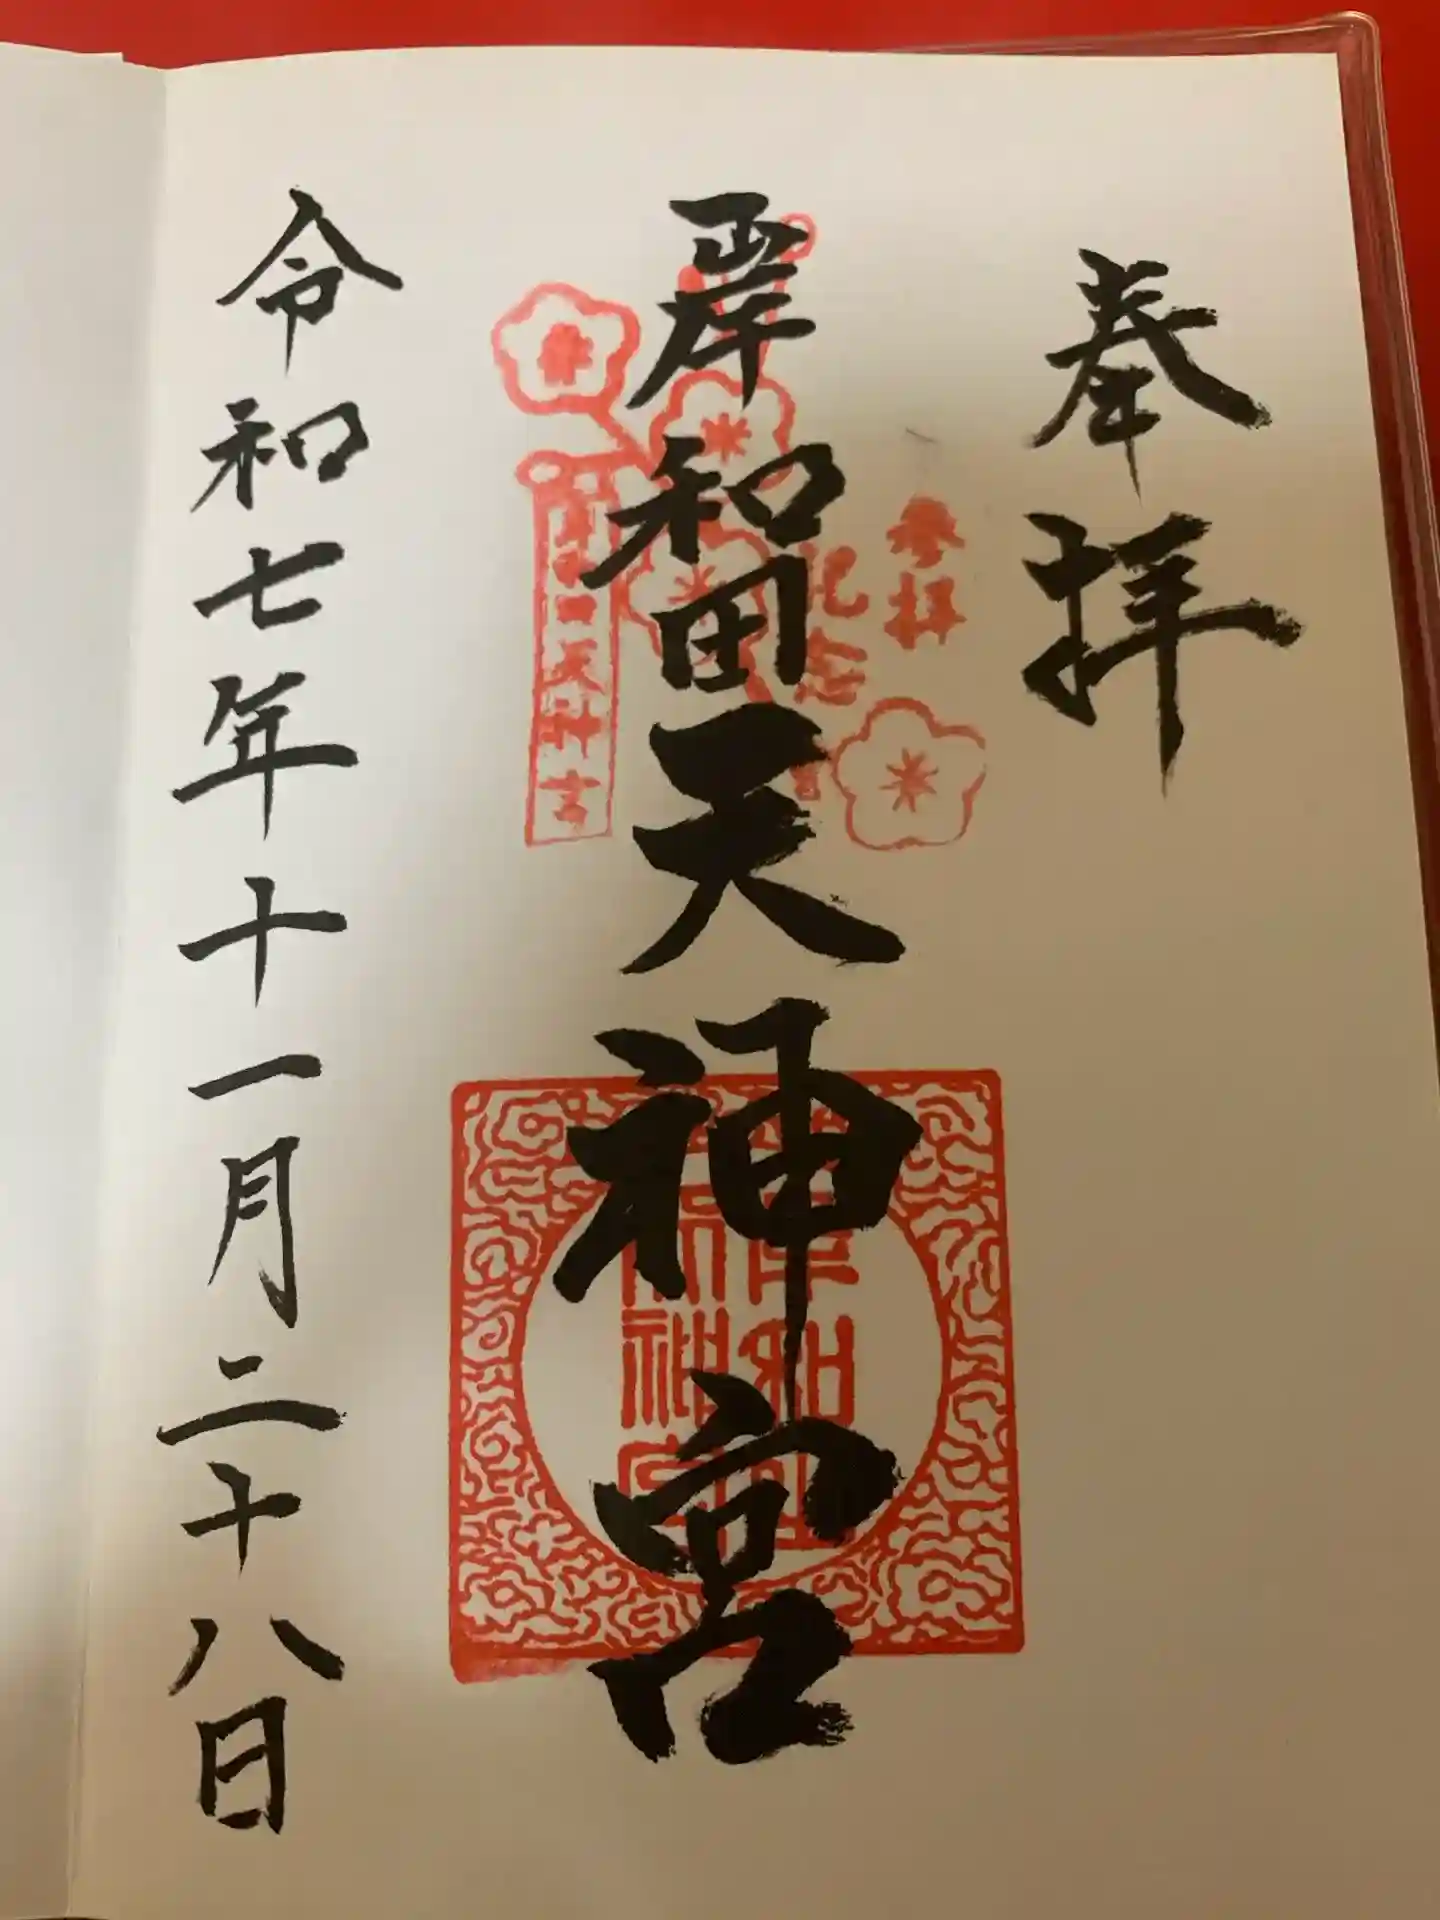 奉拝
参拝
記念
岸和田天神宮
岸和田天神宮
岸和田
天神宮
令和七年十一月二十八日